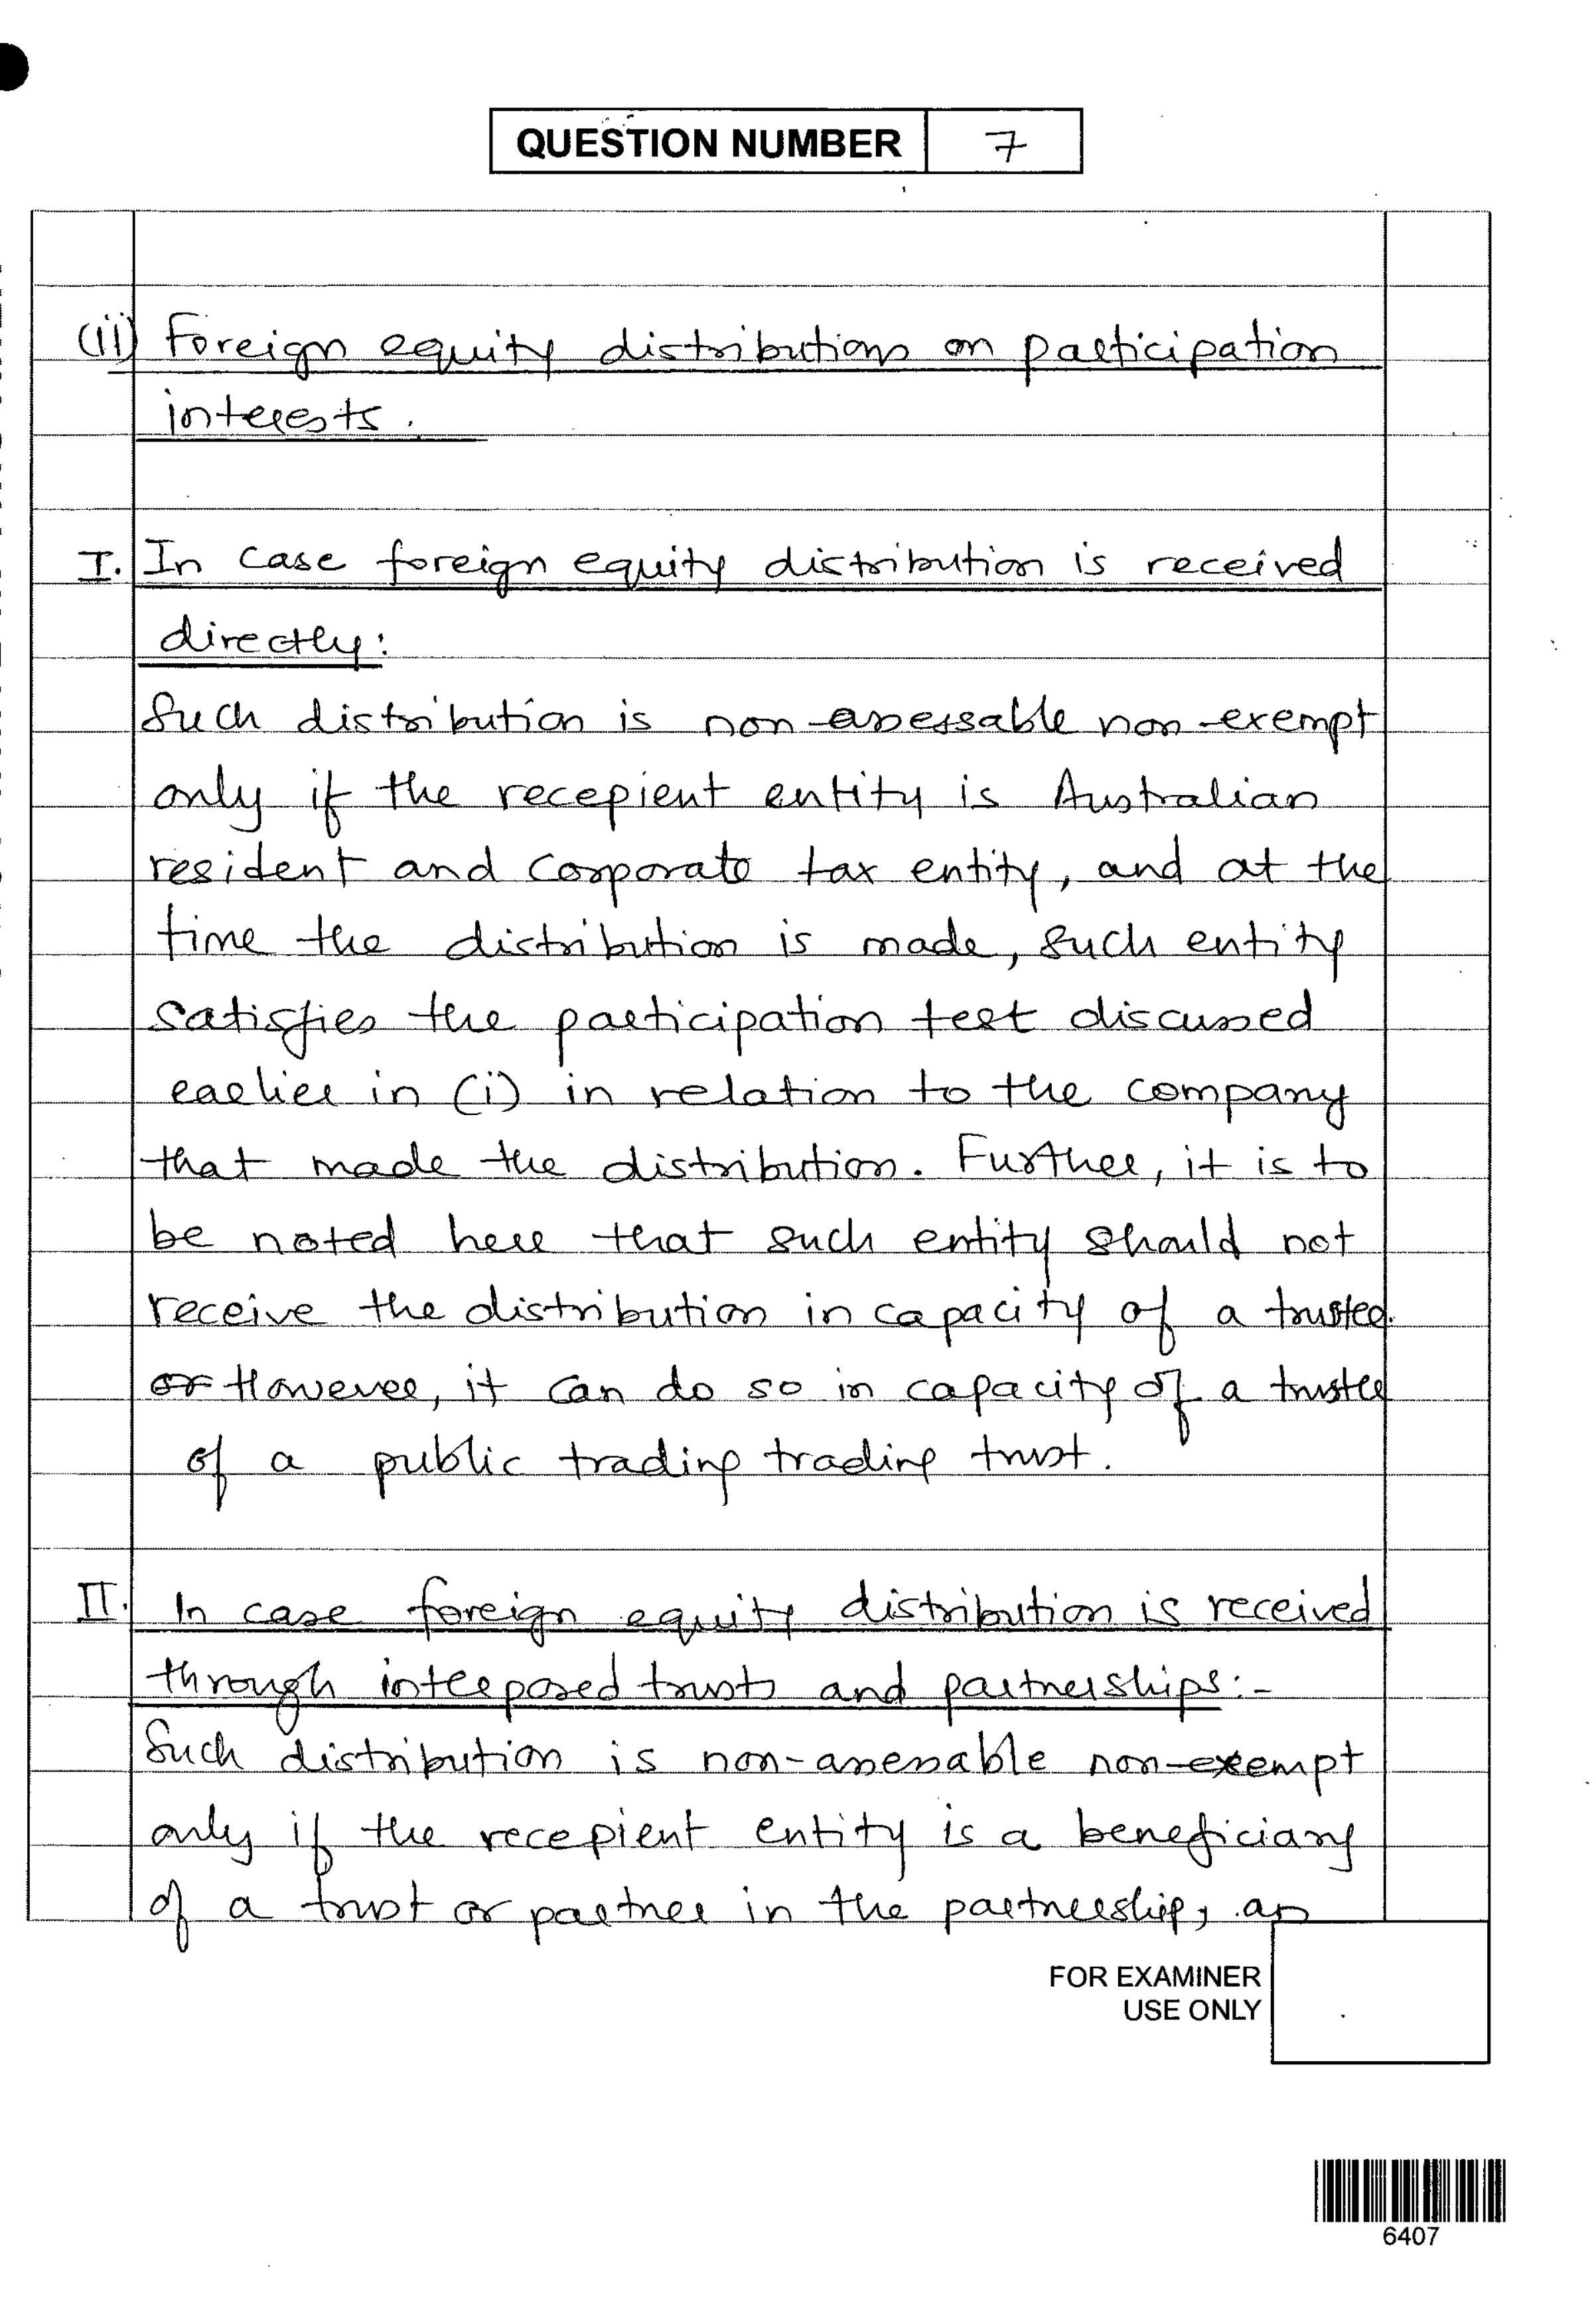 QUESTION NUMBER 7
(ii) Foreign equity distributions on participation
interests.
I. In case foreign equity distribution is received
directly:
Such distribution is non-assessable non-exempt
only if the recepient entity is Australian
resident and corporate tax entity, and at the
time the distribution is made, such entity
satisfies the participation test discussed
earlier in (i) in relation to the company
that made the distribution. Further, it is to
be noted here that such entity should not
receive the distribution in capacity of a trustee.
or However, it can do so in capacity of a trustee
of a public trading trading trust.
II. In case foreign equity distribution is received
through interposed trusts and partnerships:-
Such distribution is non-assessable non-exempt
only if the recepient entity is a beneficiary
of a trust or partner in the partnership, as
FOR EXAMINER
USE ONLY
6407